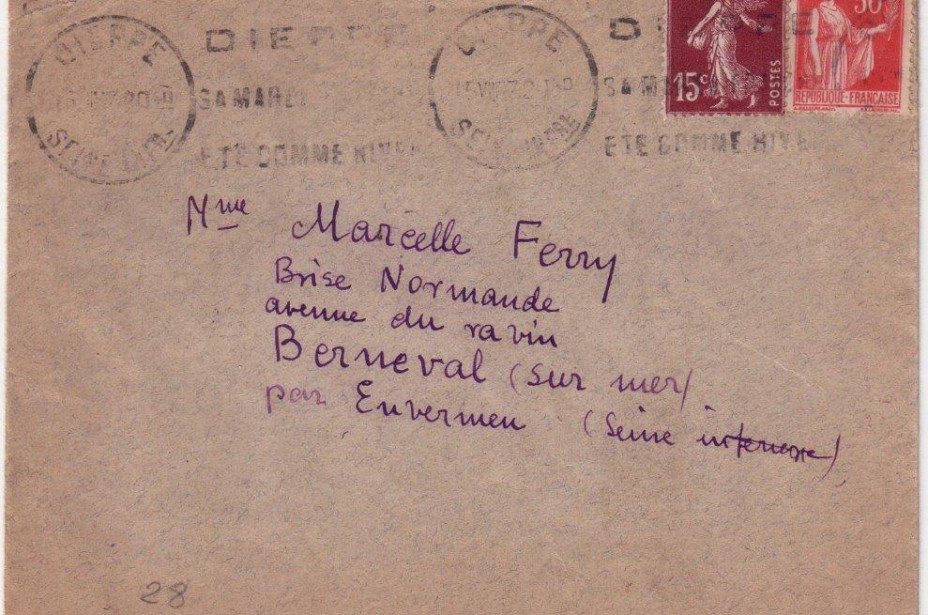 DIEPPE
SEINE INFRE
DIEPPE
SA MARE
ETE COMME HIVER
DIEPPE
SEINE INFRE
DIEPPE
SA MA
ETE COMME HIVE
15c
POSTES
50c
REPUBLIQUE FRANCAISE
Mme Marcelle Ferry
Brise Normande
avenue du ravin
Berneval (sur mer)
par Envermeu (Seine inferieure)
28